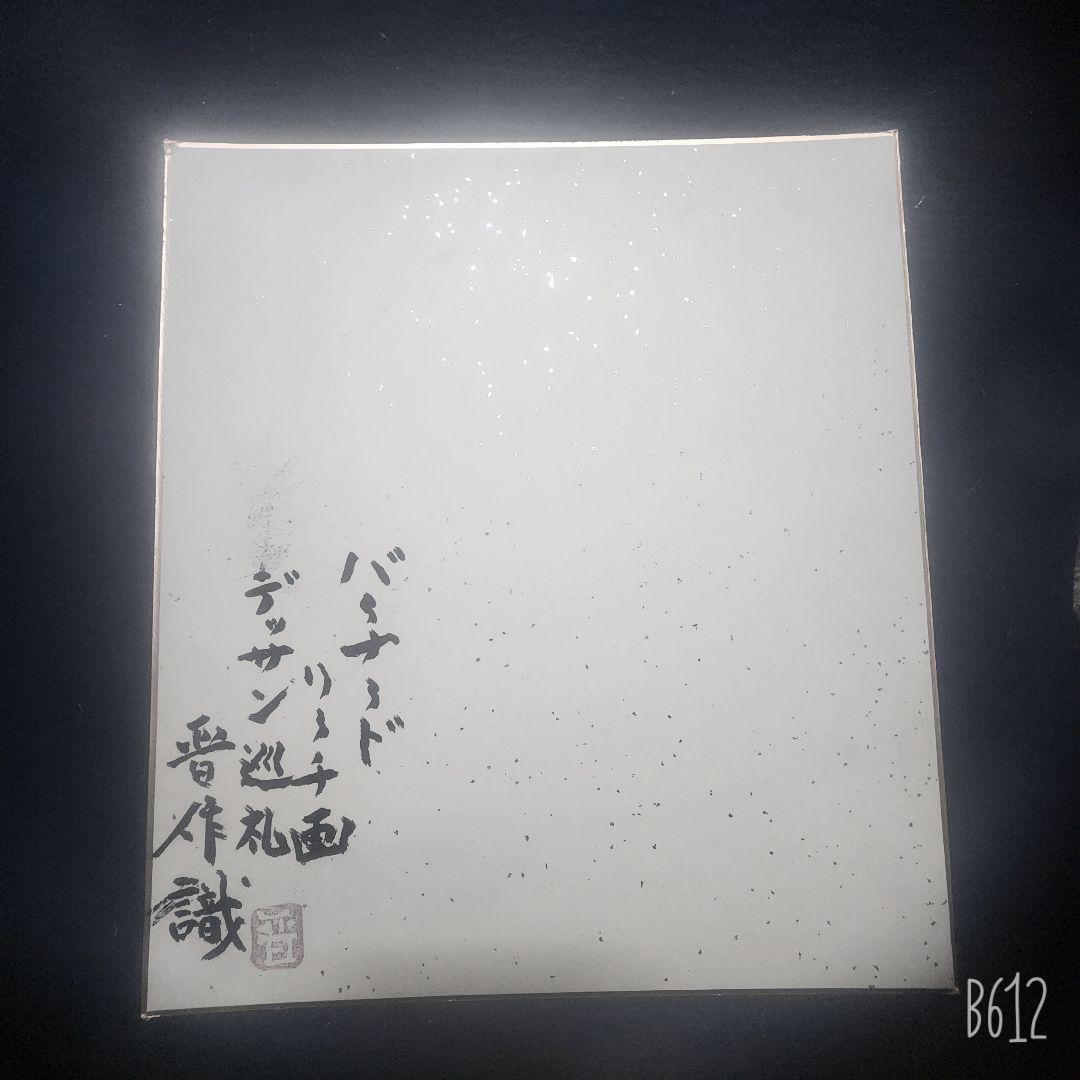 バーナード
リーチ画
デッサン巡礼
晋作識
晋
B612